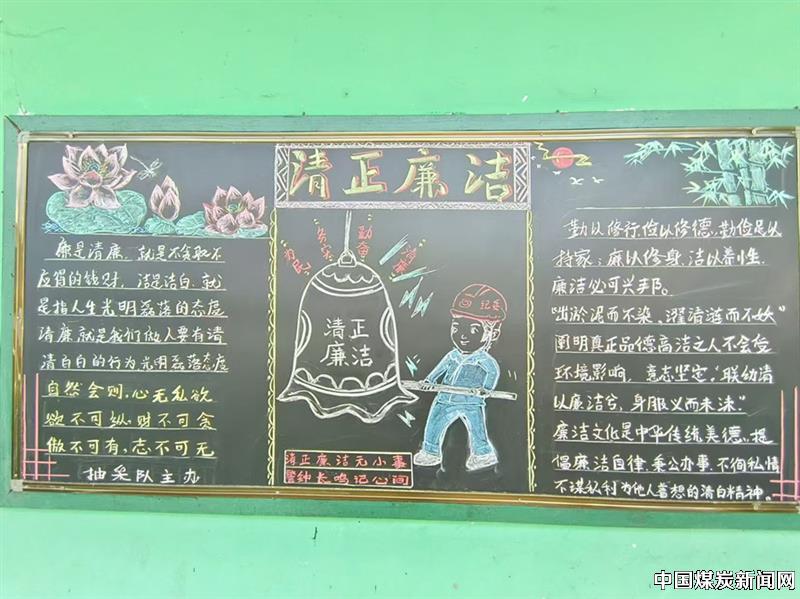 清正廉洁
廉是清廉,就是不贪取不
应得的钱财,洁是洁白,就
是指人生光明磊落的态度
清廉就是我们做人要有清
清白白的行为光明磊落态度
自然会则,心无私欲
欲不可纵,财不可贪
傲不可有,志不可无
抽采队主办
为民
务实
勤奋
清廉
清正
廉洁
纪委
清正廉洁无小事
警钟长鸣记心间
勤以修行俭以修德,勤俭足以
持家;廉以修身,洁以养性.
廉洁必可兴邦。
"出淤泥而不染、濯清涟而不妖"
阐明真正品德高洁之人不会受
环境影响,意志坚定,"朕幼清
以廉洁兮,身服义而未沫."
廉洁文化是中华传统美德、提
倡廉洁自律、秉公办事、不徇私情
不谋私利为他人着想的清白精神。
中国煤炭新闻网